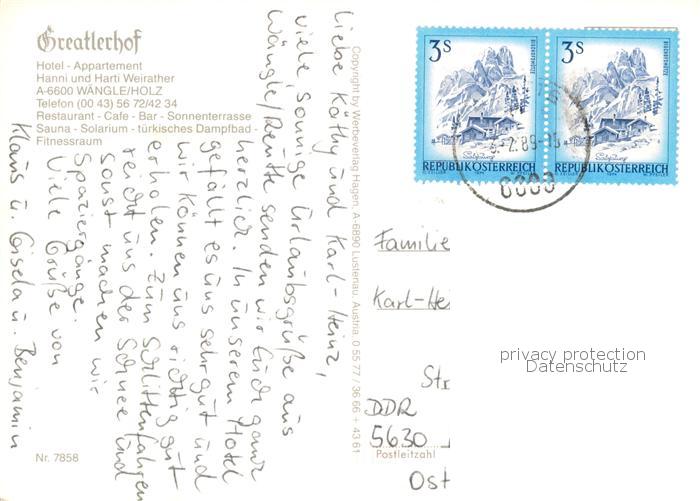 Greatlerhof
Hotel - Appartement
Hanni und Harti Weirather
A-6600 WÄNGLE/HOLZ
Telefon (00 43) 56 72/42 34
Restaurant - Cafe - Bar - Sonnenterrasse
Sauna - Solarium - türkisches Dampfbad -
Fitnessraum
Liebe Käthy und Karl-Heinz,
viele sonnige Urlaubsgrüße aus
Wängle/Reutte senden wir Euch ganz
herzlich. In unserem Hotel
gefällt es uns sehr gut und
wir können uns richtig gut
erholen. Zum Schlittenfahren
reicht uns der Schnee und
sonst machen wir
Spaziergänge.
Viele Grüße von
Klaus u. Gisela u. Benjamin
Nr. 7858
Copyright by Werbeverlag Hagen, A-6890 Lustenau, Austria, 0 55 77 / 36 66 + 43 61
3 S
BISCHOFSMÜTZE
Salzburg
REPUBLIK ÖSTERREICH
3 S
BISCHOFSMÜTZE
Salzburg
REPUBLIK ÖSTERREICH
Familie
Karl-Hei
Str
DDR
5630
Postleitzahl
Ost
privacy protection
Datenschutz